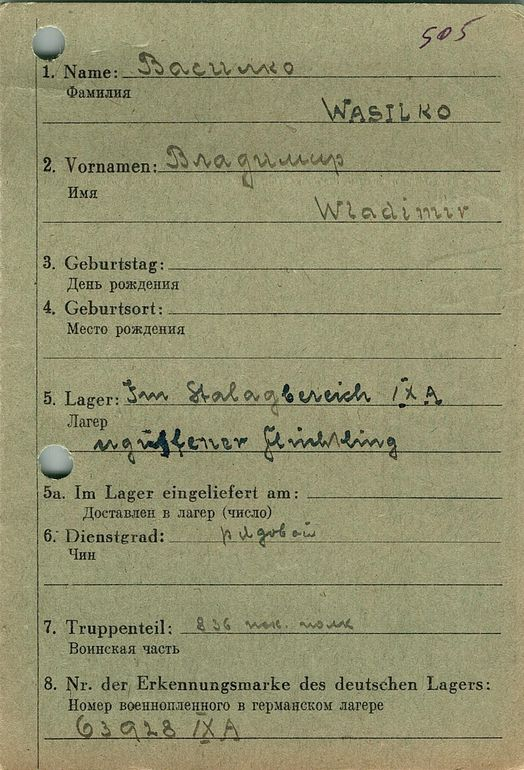 505
1. Name: Василко
Фамилия
WASILKO
2. Vornamen: Владимир
Имя
Wladimir
3. Geburtstag:
День рождения
4. Geburtsort:
Место рождения
5. Lager: Im Stalagbereich IX A
Лагер
Flüchtling
5a. Im Lager eingeliefert am:
Доставлен в лагер (число)
6. Dienstgrad: рядовой
Чин
7. Truppenteil: 836 полк
Воинская часть
8. Nr. der Erkennungsmarke des deutschen Lagers:
Номер военнопленного в германском лагере
63928 IX A